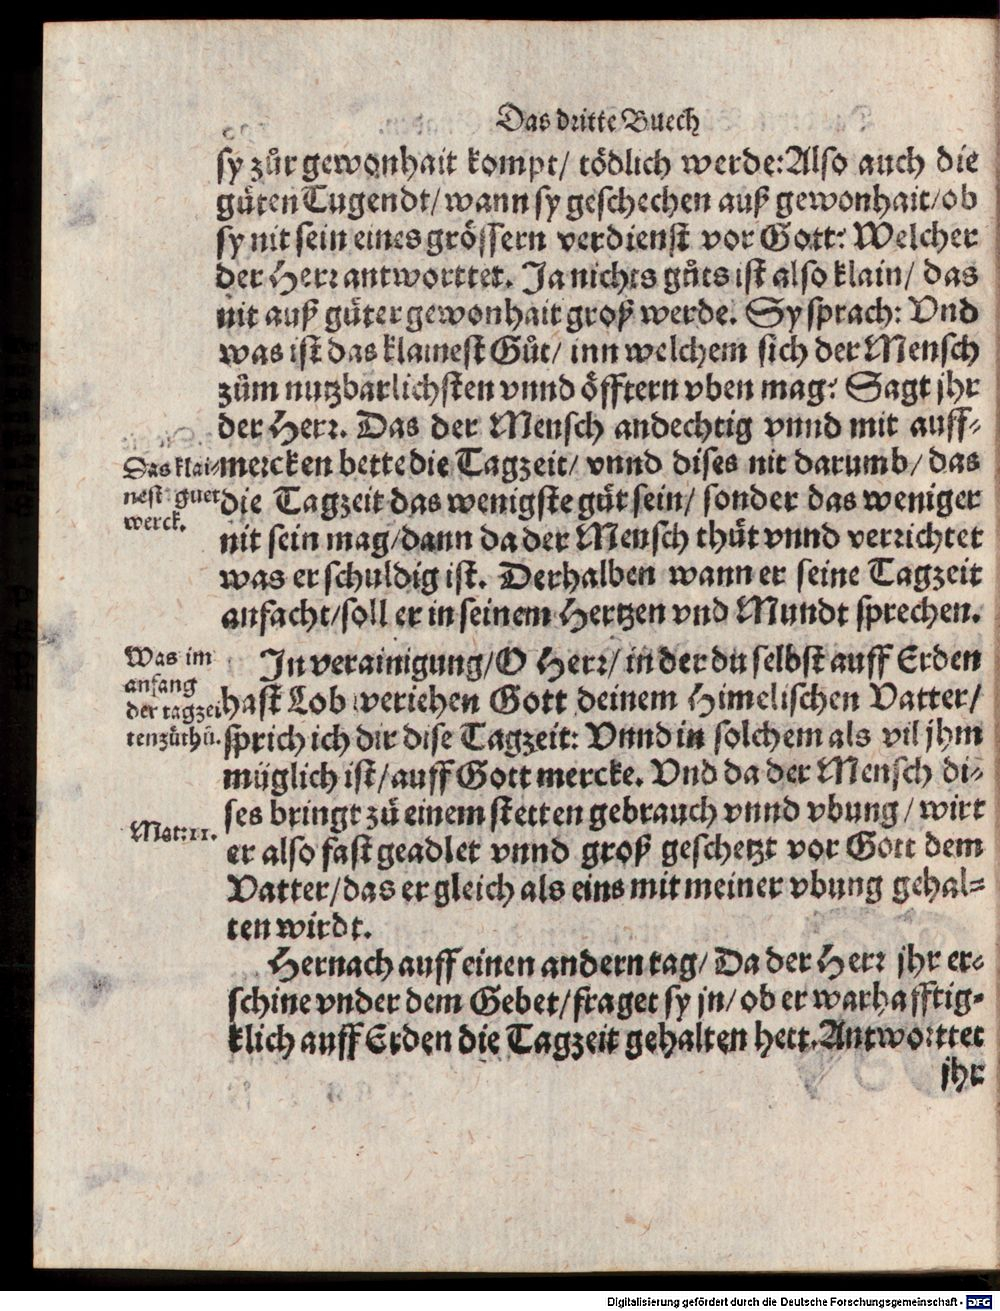 Das dritte Buech
sy zůr gewonhait kompt/ tödlich werde: Also auch die
gůten Tugendt/ wann sy geschechen auß gewonhait/ ob
sy nit sein eines grössern verdienst vor Gott? Welcher
der Herr antworttet. Ja nichts gůts ist also klain/ das
nit auß gůter gewonhait groß werde. Sy sprach: Vnd
was ist das klainest Gůt/ inn welchem sich der Mensch
zům nutzbarlichsten vnnd öfftern vben mag? Sagt jhr
der Herr. Das der Mensch andechtig vnnd mit auff-
Das klai-
nest guet
werck.
mercken bette die Tagzeit/ vnnd dises nit darumb/ das
die Tagzeit das wenigste gůt sein/ sonder das weniger
nit sein mag/ dann da der Mensch thůt vnnd verrichtet
was er schuldig ist. Derhalben wann er seine Tagzeit
anfacht/ soll er in seinem Hertzen vnd Mundt sprechen.
Was im
anfang
der tagzei
ten zůthů.
In verainigung/ O Herr/ in der du selbst auff Erden
hast Lob veriehen Gott deinem Himelischen Vatter/
sprich ich dir dise Tagzeit: Vnnd in solchem als vil jhm
müglich ist/ auff Gott mercke. Vnd da der Mensch di-
ses bringt zů einem stetten gebrauch vnnd vbung/ wirt
Mat: 11.
er also fast geadlet vnnd groß geschetzt vor Gott dem
Vatter/ das er gleich als eins mit meiner vbung gehal-
ten wirdt.
Hernach auff einen andern tag/ Da der Herr jhr er-
schine vnder dem Gebet/ fraget sy jn/ ob er warhafftig-
klich auff Erden die Tagzeit gehalten hett. Antworttet
jhr
Digitalisierung gefördert durch die Deutsche Forschungsgemeinschaft - DFG